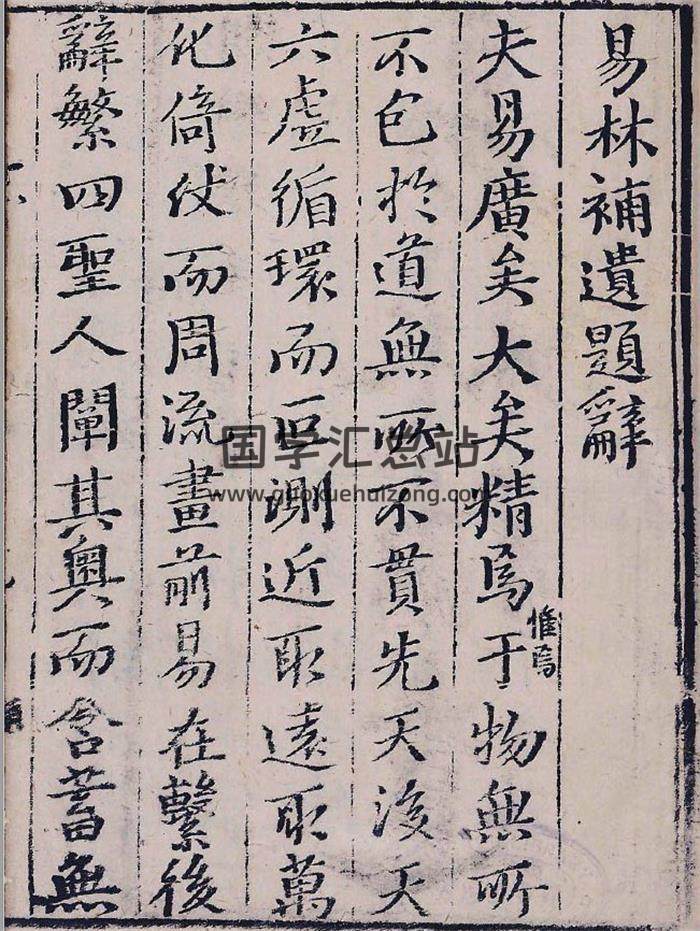 易林補遺題辭
夫易廣矣大矣精焉惟焉于物無所
不包於道無所不貫先天後天
六虛循環而叵測近取遠取萬
化倚伏而周流畫前易在繫後
辭繁四聖人闡其奧而含蓄無
国学汇总站
www.guoxuehuizong.com